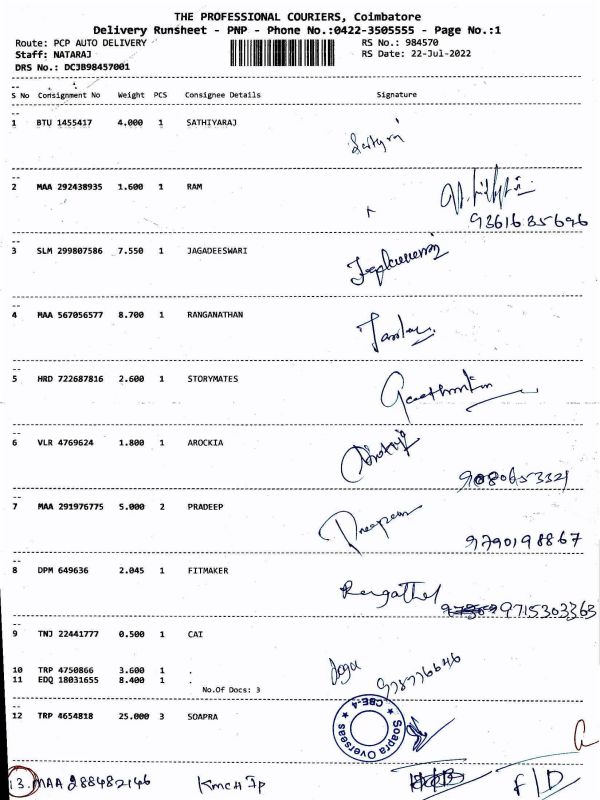 THE PROFESSIONAL COURIERS, Coimbatore
Delivery Runsheet - PNP - Phone No.:0422-3505555 - Page No.:1
Route: PCP AUTO DELIVERY RS No.: 984570
Staff: NATARAJ RS Date: 22-Jul-2022
DRS No.: DCJB98457001
S No Consignment No Weight PCS Consignee Details Signature
1 BTU 1455417 4.000 1 SATHIYARAJ
2 MAA 292438935 1.600 1 RAM
9361685696
3 SLM 299807586 7.550 1 JAGADEESWARI
4 MAA 567056577 8.700 1 RANGANATHAN
5 HRD 722687816 2.600 1 STORYMATES
6 VLR 4769624 1.800 1 AROCKIA
9080653321
7 MAA 291976775 5.000 2 PRADEEP
9790198867
8 DPM 649636 2.045 1 FITMAKER
9715303363
9 TNJ 22441777 0.500 1 CAI
10 TRP 4750866 3.600 1 .
11 EDQ 18031655 8.400 1 .
No.Of Docs: 3
12 TRP 4654818 25.000 3 SOAPRA
Soapra Overseas
CBE-4
13. MAA 288482146 KMCH Fp F/D